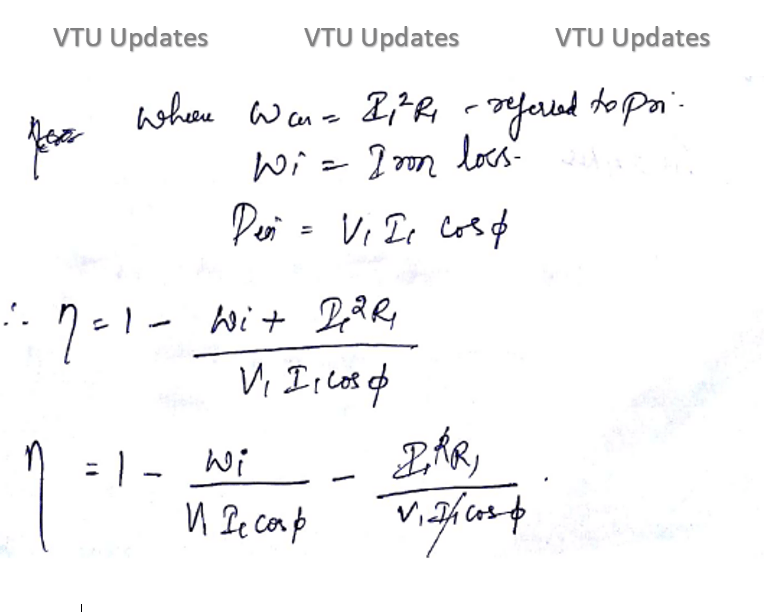 VTU Updates VTU Updates VTU Updates
where Wcu = I₁²R₁ - referred to pri.
Wi = Iron loss.
Ppri = V₁ I₁ cos φ
∴ η = 1 - (Wi + I₁²R₁) / (V₁ I₁ cos φ)
η = 1 - Wi / (V₁ I₁ cos φ) - I₁²R₁ / (V₁ I₁ cos φ) .